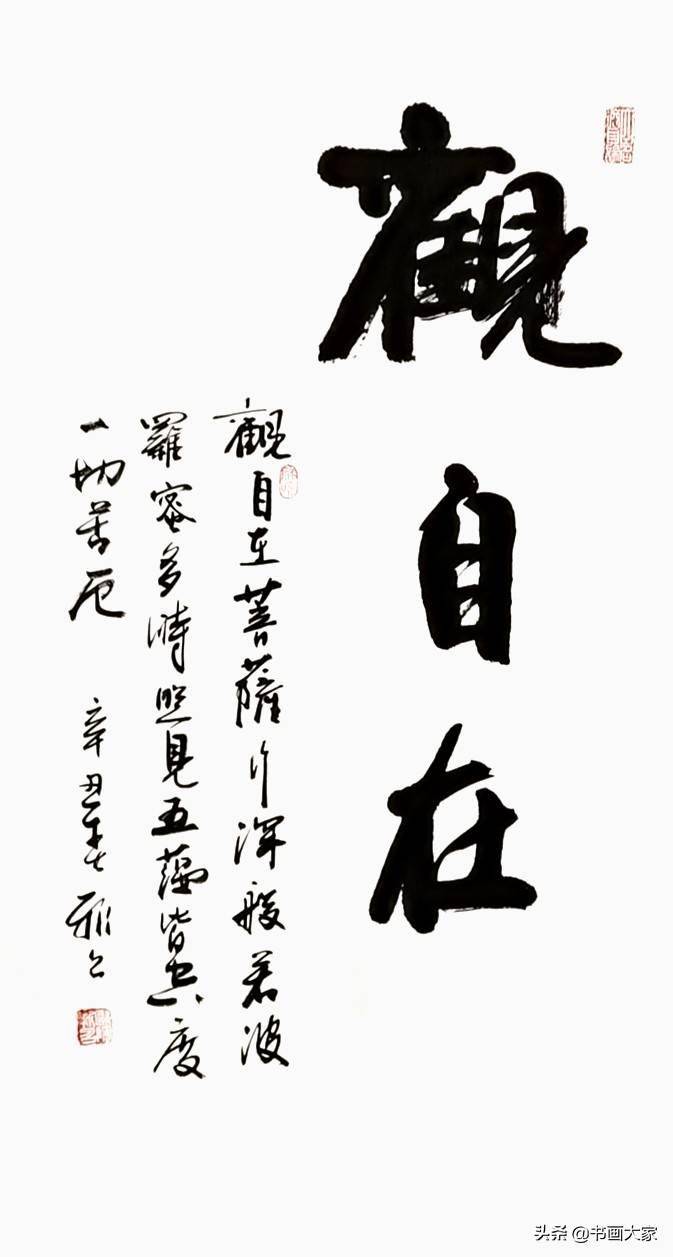 觀自在
觀自在菩薩行深般若波
羅蜜多時照見五蘊皆空度
一切苦厄 辛丑春
头条 @书画大家